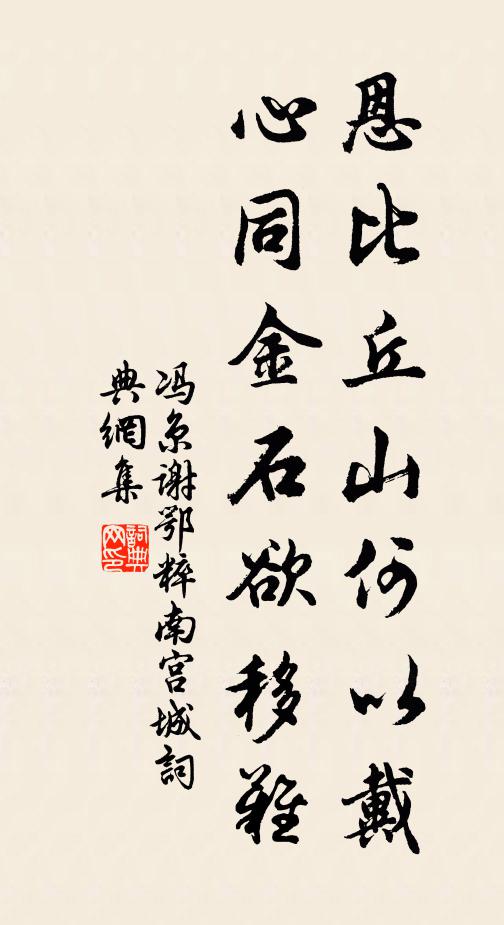 恩比丘山何以戴
心同金石欲移難
冯京谢鄂粹南宫城詞
典網集
詞典
网印